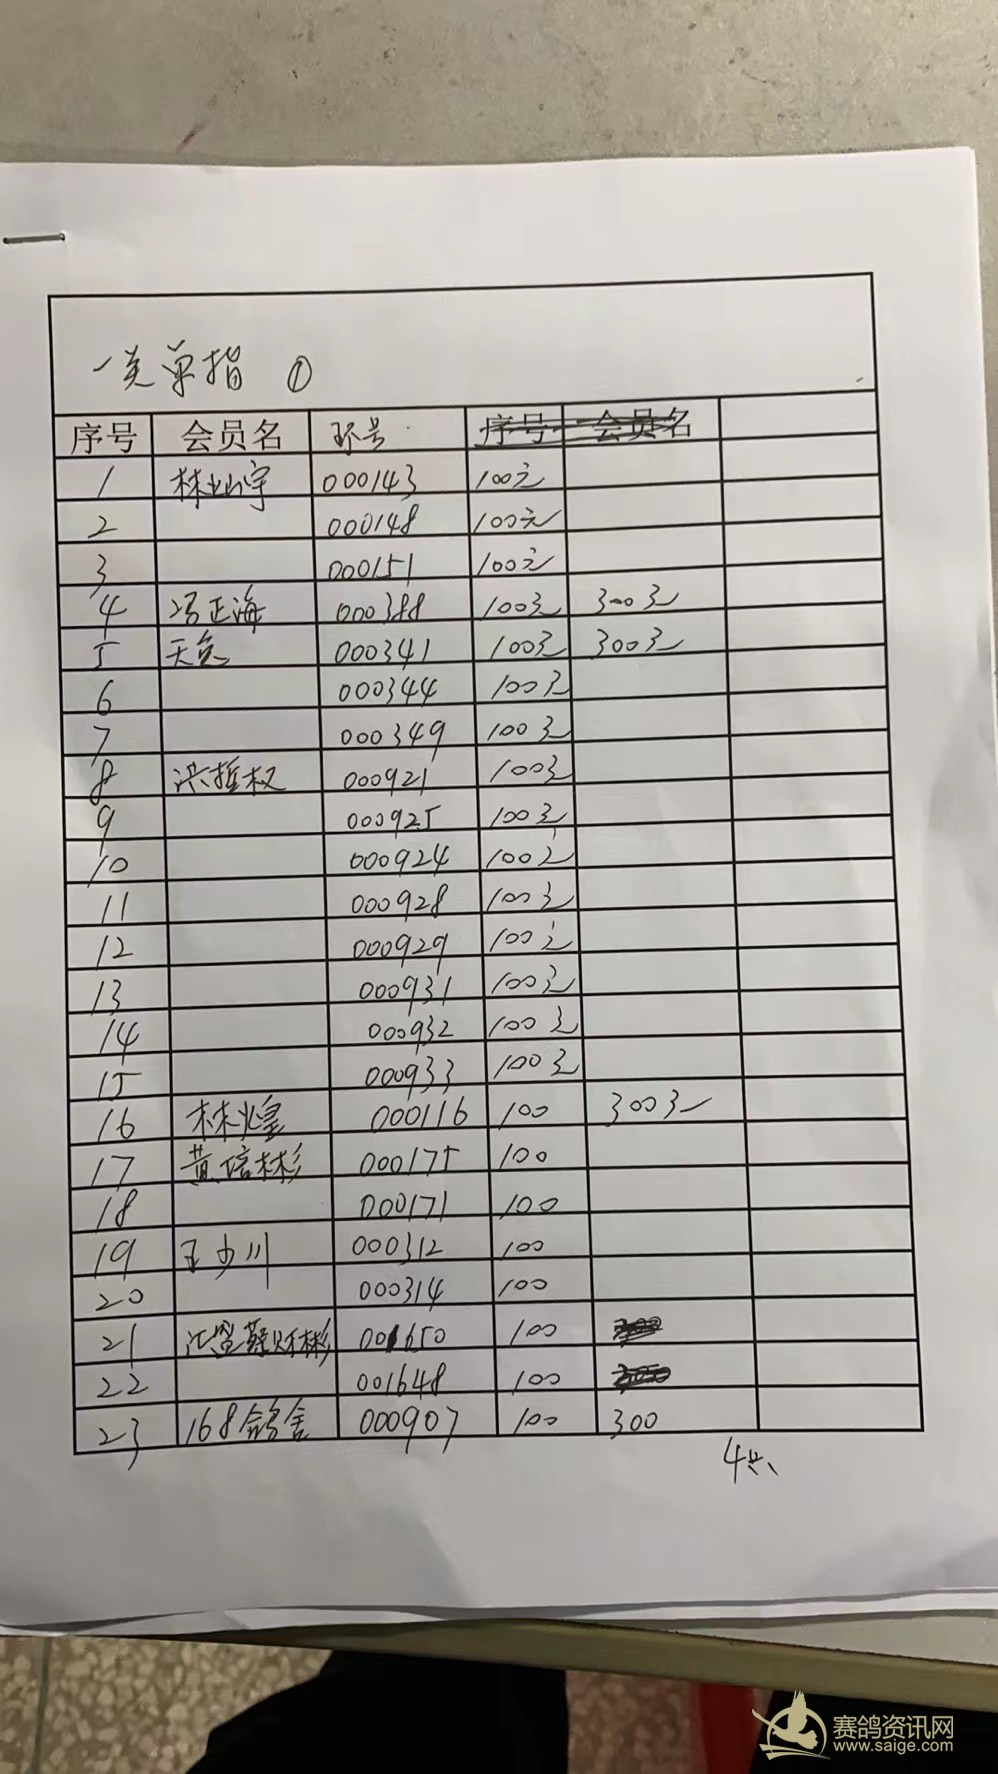 一类单指 ①
序号 会员名 环号 序号 会员名
1 000143 100元
2 000148 100元
3 000151 100元
4 冯正海 000388 100元 300元
5 000341 100元 300元
6 000344 100元
7 000349 100元
8 洪哲权 000921 100元
9 000925 100元
10 000924 100元
11 000928 100元
12 000929 100元
13 000931 100元
14 000932 100元
15 000933 100元
16 林煌 000116 100 300元
17 黄培彬 000175 100
18 000171 100
19 王少川 000312 100
20 000314 100
21 001650 100
22 001648 100
23 168鸽舍 000907 100 300
赛鸽资讯网
www.saige.com